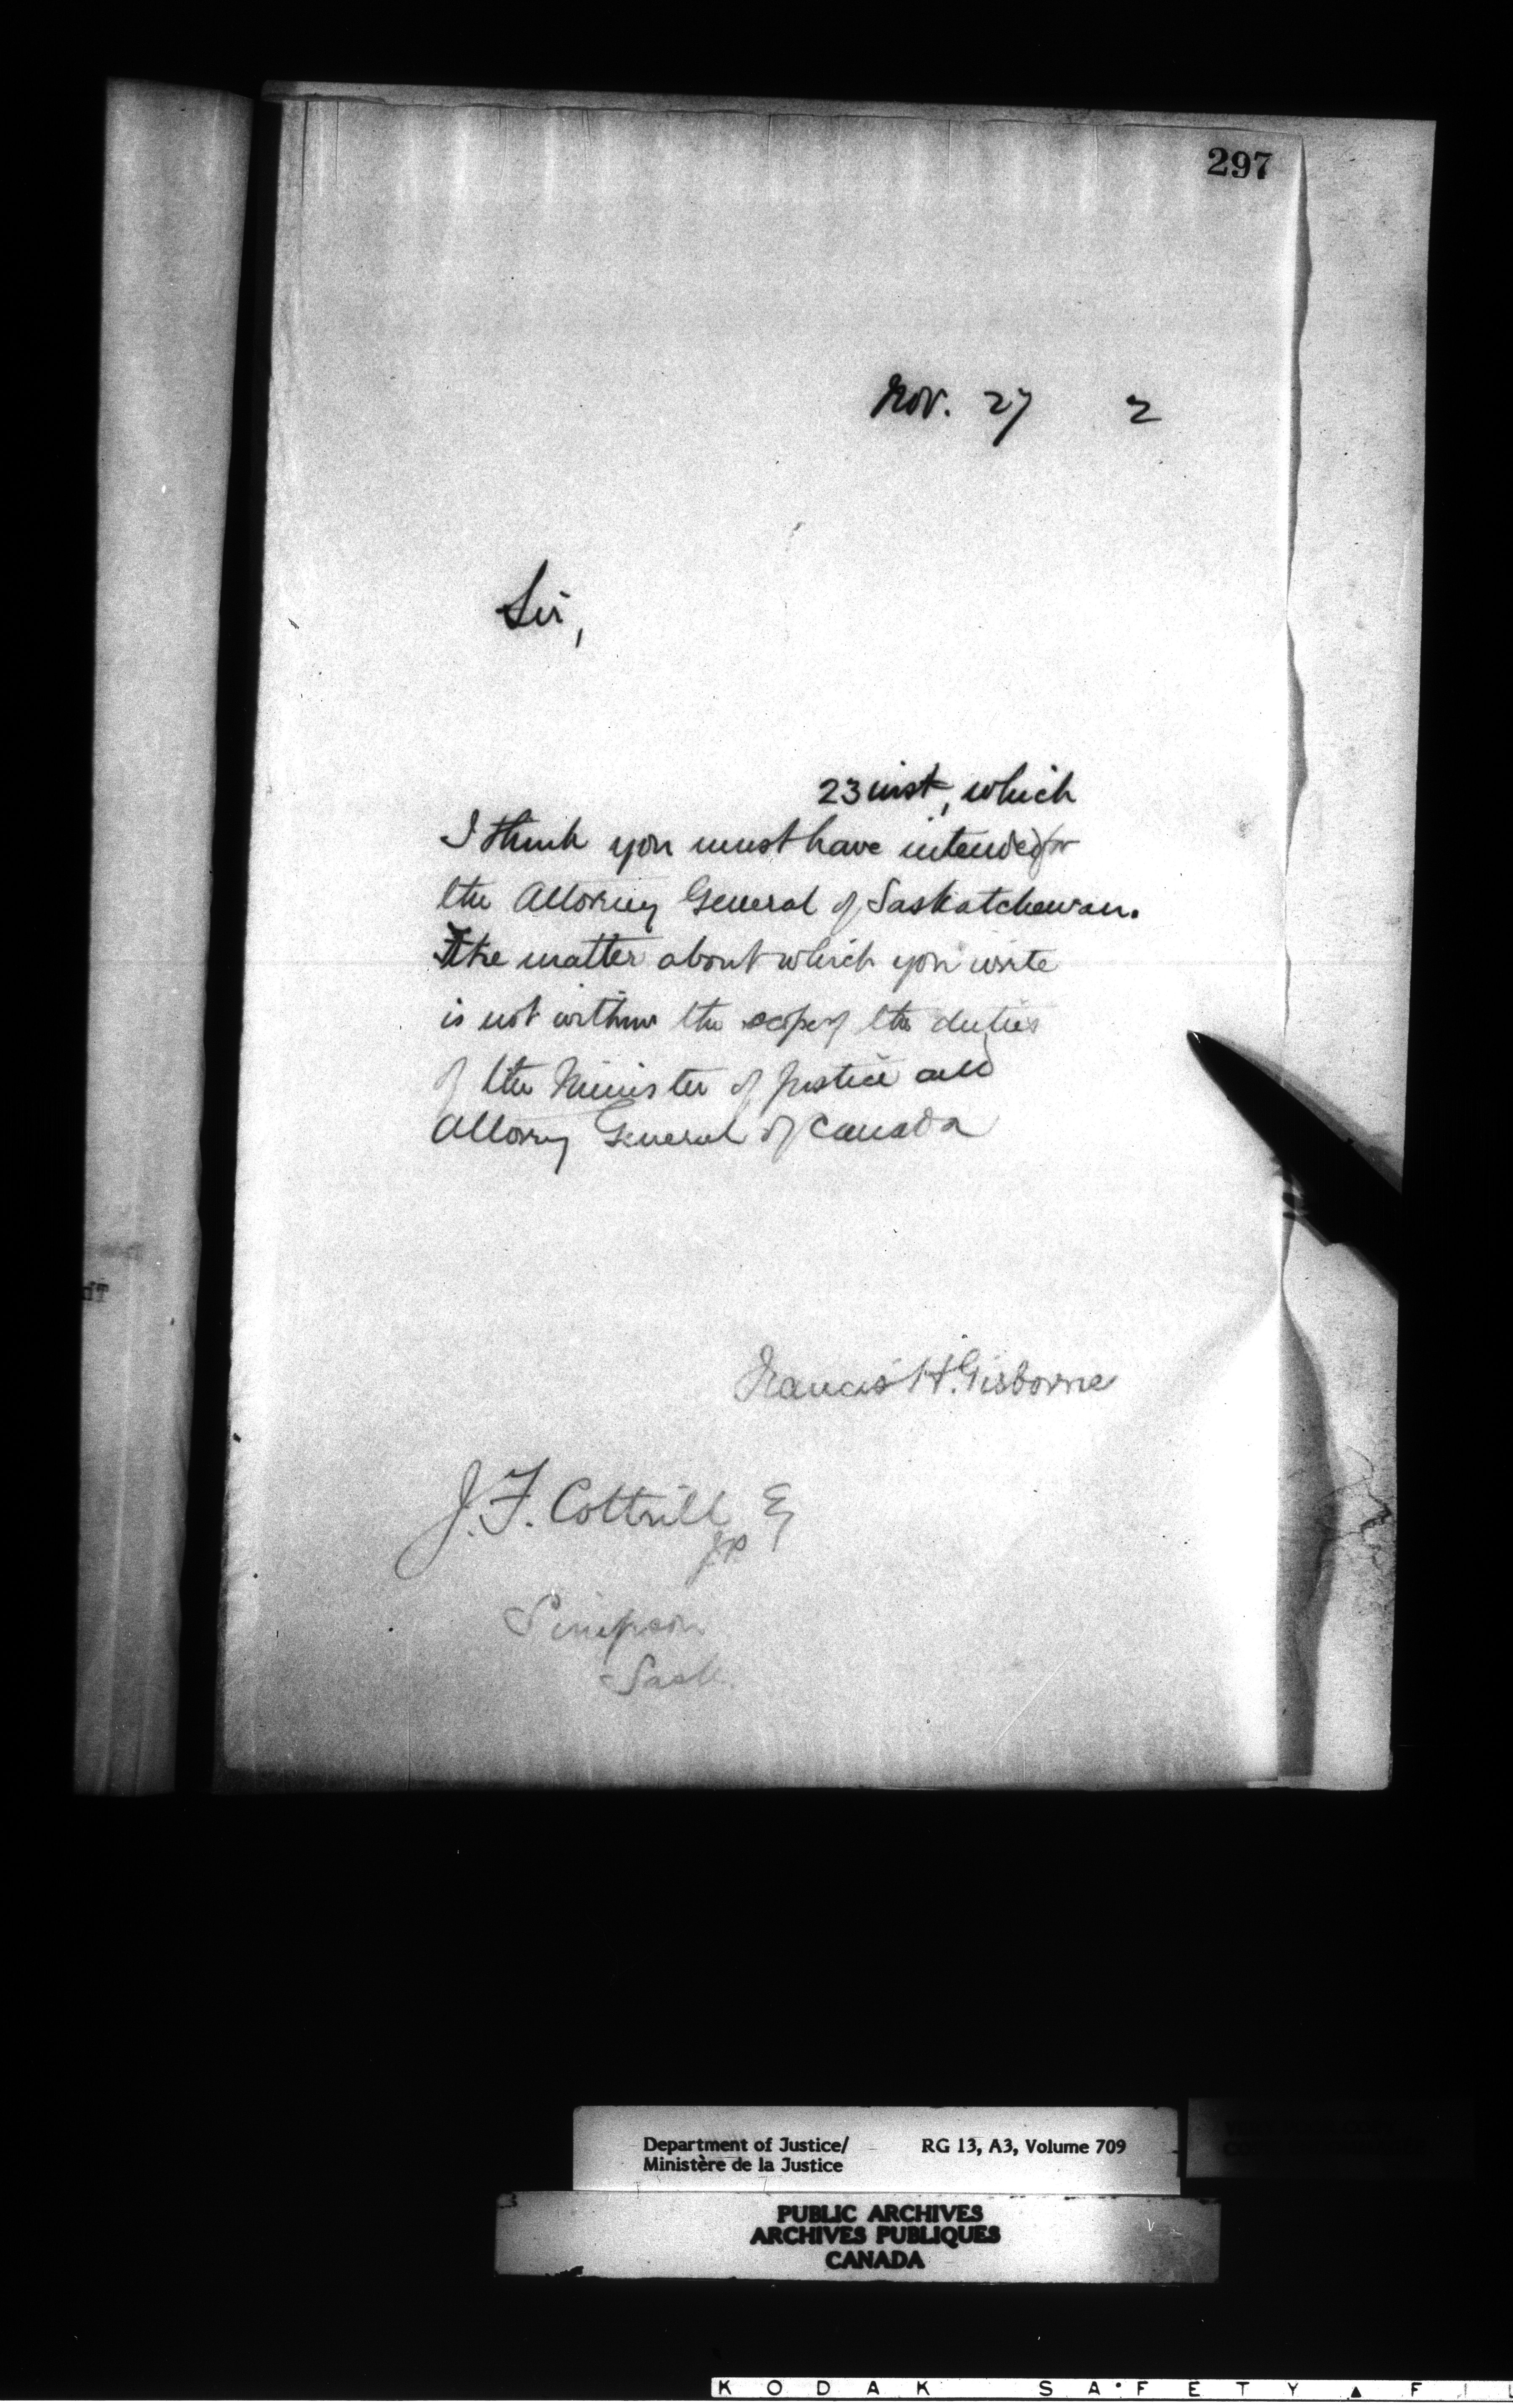 297
Nov. 27 2
Sir,
23 inst, which
I think you must have intended for
the Attorney General of Saskatchewan.
The matter about which you write
is not within the scope of the duties
of the Minister of Justice and
Attorney General of Canada
Francis H. Gisborne
J. F. Cottrill Esq
JP
Simpson
Sask.
Department of Justice/ RG 13, A3, Volume 709
Ministère de la Justice
PUBLIC ARCHIVES
ARCHIVES PUBLIQUES
CANADA
KODAK SAFETY FIL